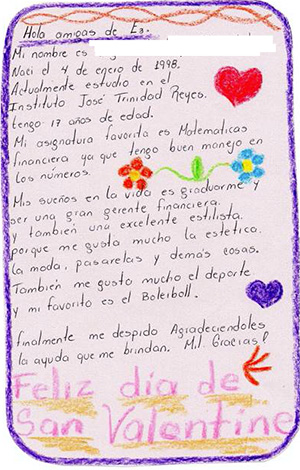 Hola amigas de E3.
Mi nombre es
Naci el 4 de enero de 1998.
Actualmente estudio en el
Instituto José Trinidad Reyes.
tengo 17 años de edad.
Mi asignatura favorita es Matematicas
financiera ya que tengo buen manejo en
Los números.
Mis sueños en la vida es graduarme y
ser una gran gerente financiera.
y también una excelente estilista.
porque me gusta mucho la estética.
la moda, pasarelas y demás cosas.
También me gusta mucho el deporte
y mi favorito es el Boleiboll.
finalmente me despido Agradeciendoles
la ayuda que me brindan. Mil Gracias!
Feliz dia de
San Valentine